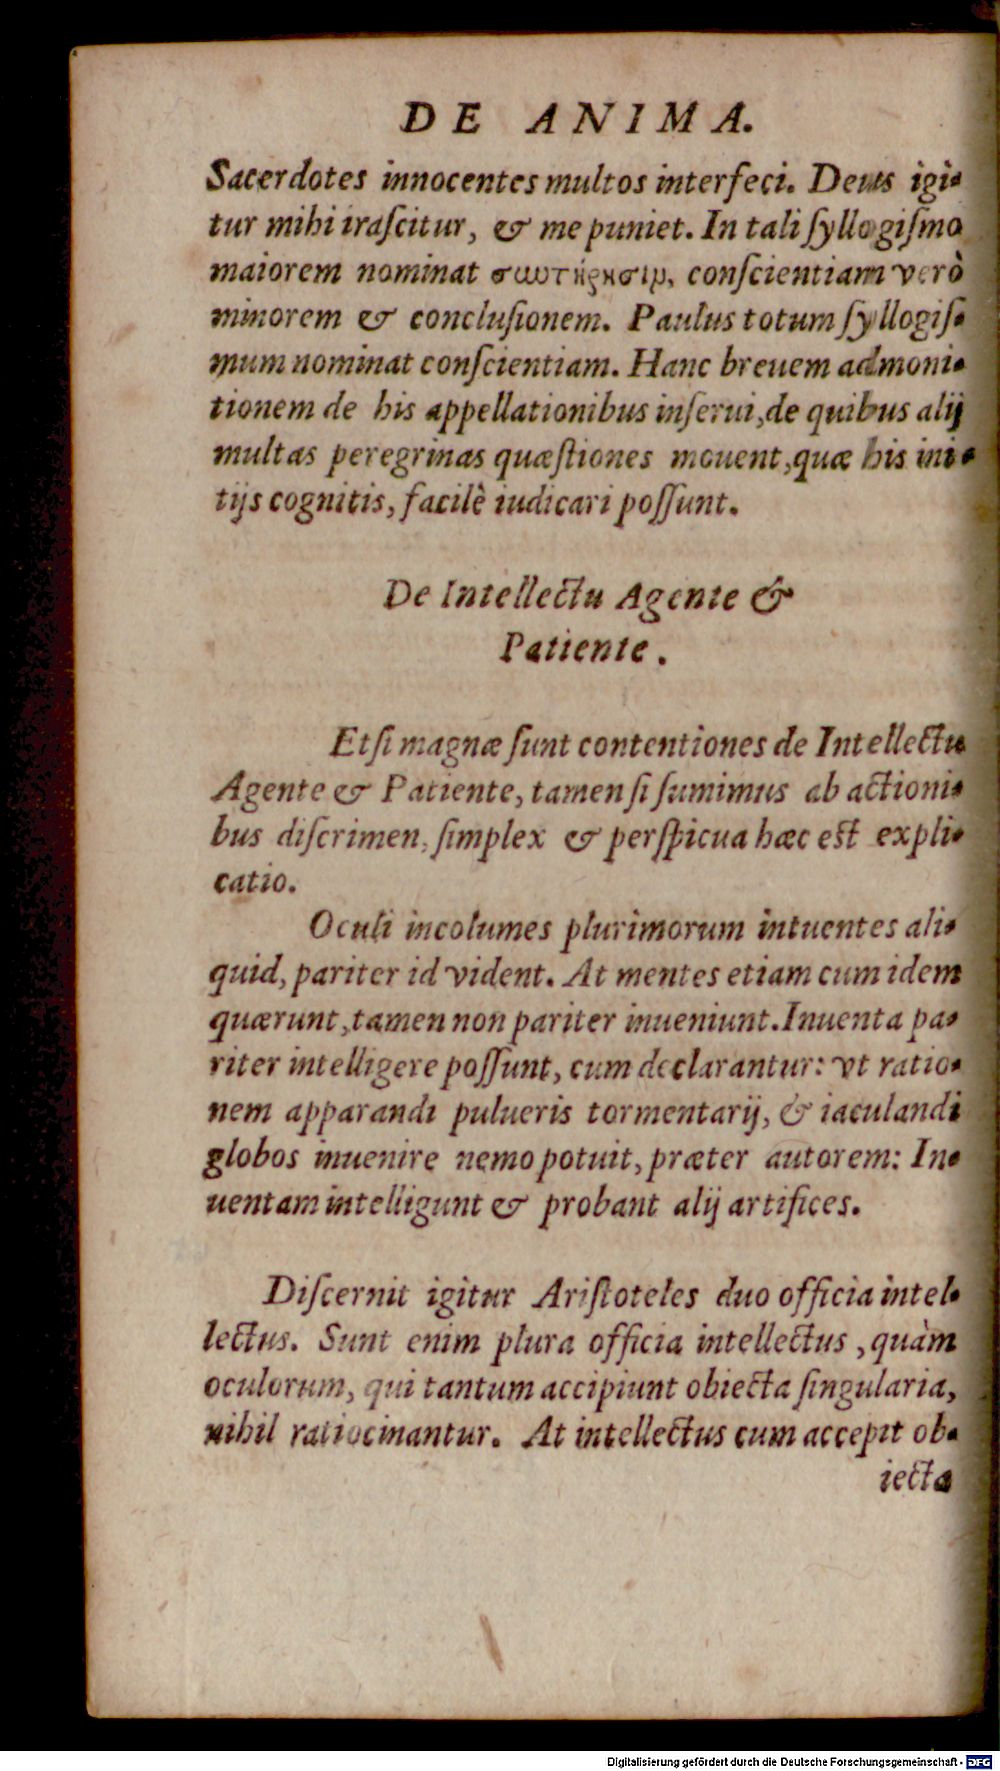 DE ANIMA.
Sacerdotes innocentes multos interfeci. Deus igi-
tur mihi iraſcitur, & me puniet. In tali ſyllogiſmo
maiorem nominat σωτήρησιν, conſcientiam verò
minorem & concluſionem. Paulus totum ſyllogiſ-
mum nominat conſcientiam. Hanc breuem admoni-
tionem de his appellationibus inſerui, de quibus alij
multas peregrinas quæſtiones mouent, quæ his ini-
tijs cognitis, facilè iudicari poſſunt.
De Intellectu Agente &
Patiente.
Etſi magnæ ſunt contentiones de Intellectu
Agente & Patiente, tamen ſi ſumimus ab actioni-
bus diſcrimen, ſimplex & perſpicua hæc eſt expli-
catio.
Oculi incolumes plurimorum intuentes ali-
quid, pariter id vident. At mentes etiam cum idem
quærunt, tamen non pariter inueniunt. Inuenta pa-
riter intelligere poſſunt, cum declarantur: vt ratio-
nem apparandi pulueris tormentarij, & iaculandi
globos inuenire nemo potuit, præter autorem: In-
uentam intelligunt & probant alij artifices.
Diſcernit igitur Ariſtoteles duo officia intel-
lectus. Sunt enim plura officia intellectus, quàm
oculorum, qui tantum accipiunt obiecta ſingularia,
nihil ratiocinantur. At intellectus cum accepit ob-
iecta
Digitalisierung gefördert durch die Deutsche Forschungsgemeinschaft - DFG